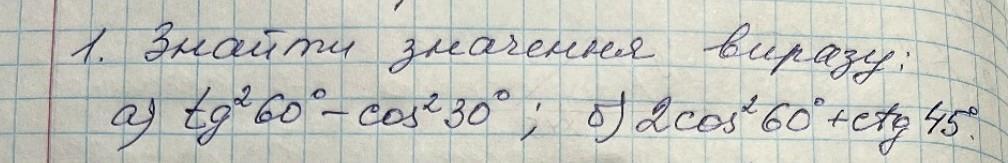 1. Знайти значення виразу:
а) tg²60° – cos²30°; б) 2cos²60° + ctg 45°.